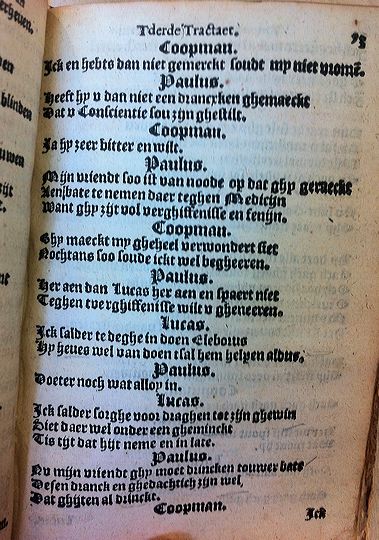 Tderde Tractaet.
Coopman.
Jck en hebts dan niet gemerckt soudt my niet vromẽ.
Paulus.
Heeft hy v dan niet een drancxken ghemaeckt
Dat v Conscientie sou zijn ghestilt.
Coopman.
Ja hy zeer bitter en wilt.
Paulus.
Mijn vriendt soo ist van noode op dat ghy geraeckt
te nemen daer teghen Medicijn
Want ghy zijt vol verghiffenisse en fenijn.
Coopman.
Ghy maeckt my gheheel verwondert siet
Nochtans soo soude ickt wel begheeren.
Paulus.
Her aen dan Lucas her aen en spaert niet
Teghen tverghiffenisse wilt v gheneeren.
Lucas.
Jck salder te deghe in doen Eleborus
Hy heves wel van doen tsal hem helpen aldus.
Paulus.
Doeter noch wat alloy in.
Lucas.
Jck salder sorghe voor draghen tot zijn ghewin
Siet daer wel onder een gheminckt
Tis tijt dat hijt neme en in late.
Paulus.
Nv mijn vriendt ghy moet drincken touwer bate
Desen dranck en ghedachtich zijn wel,
Dat ghijten al drinckt.
Coopman.
Jck
blinden